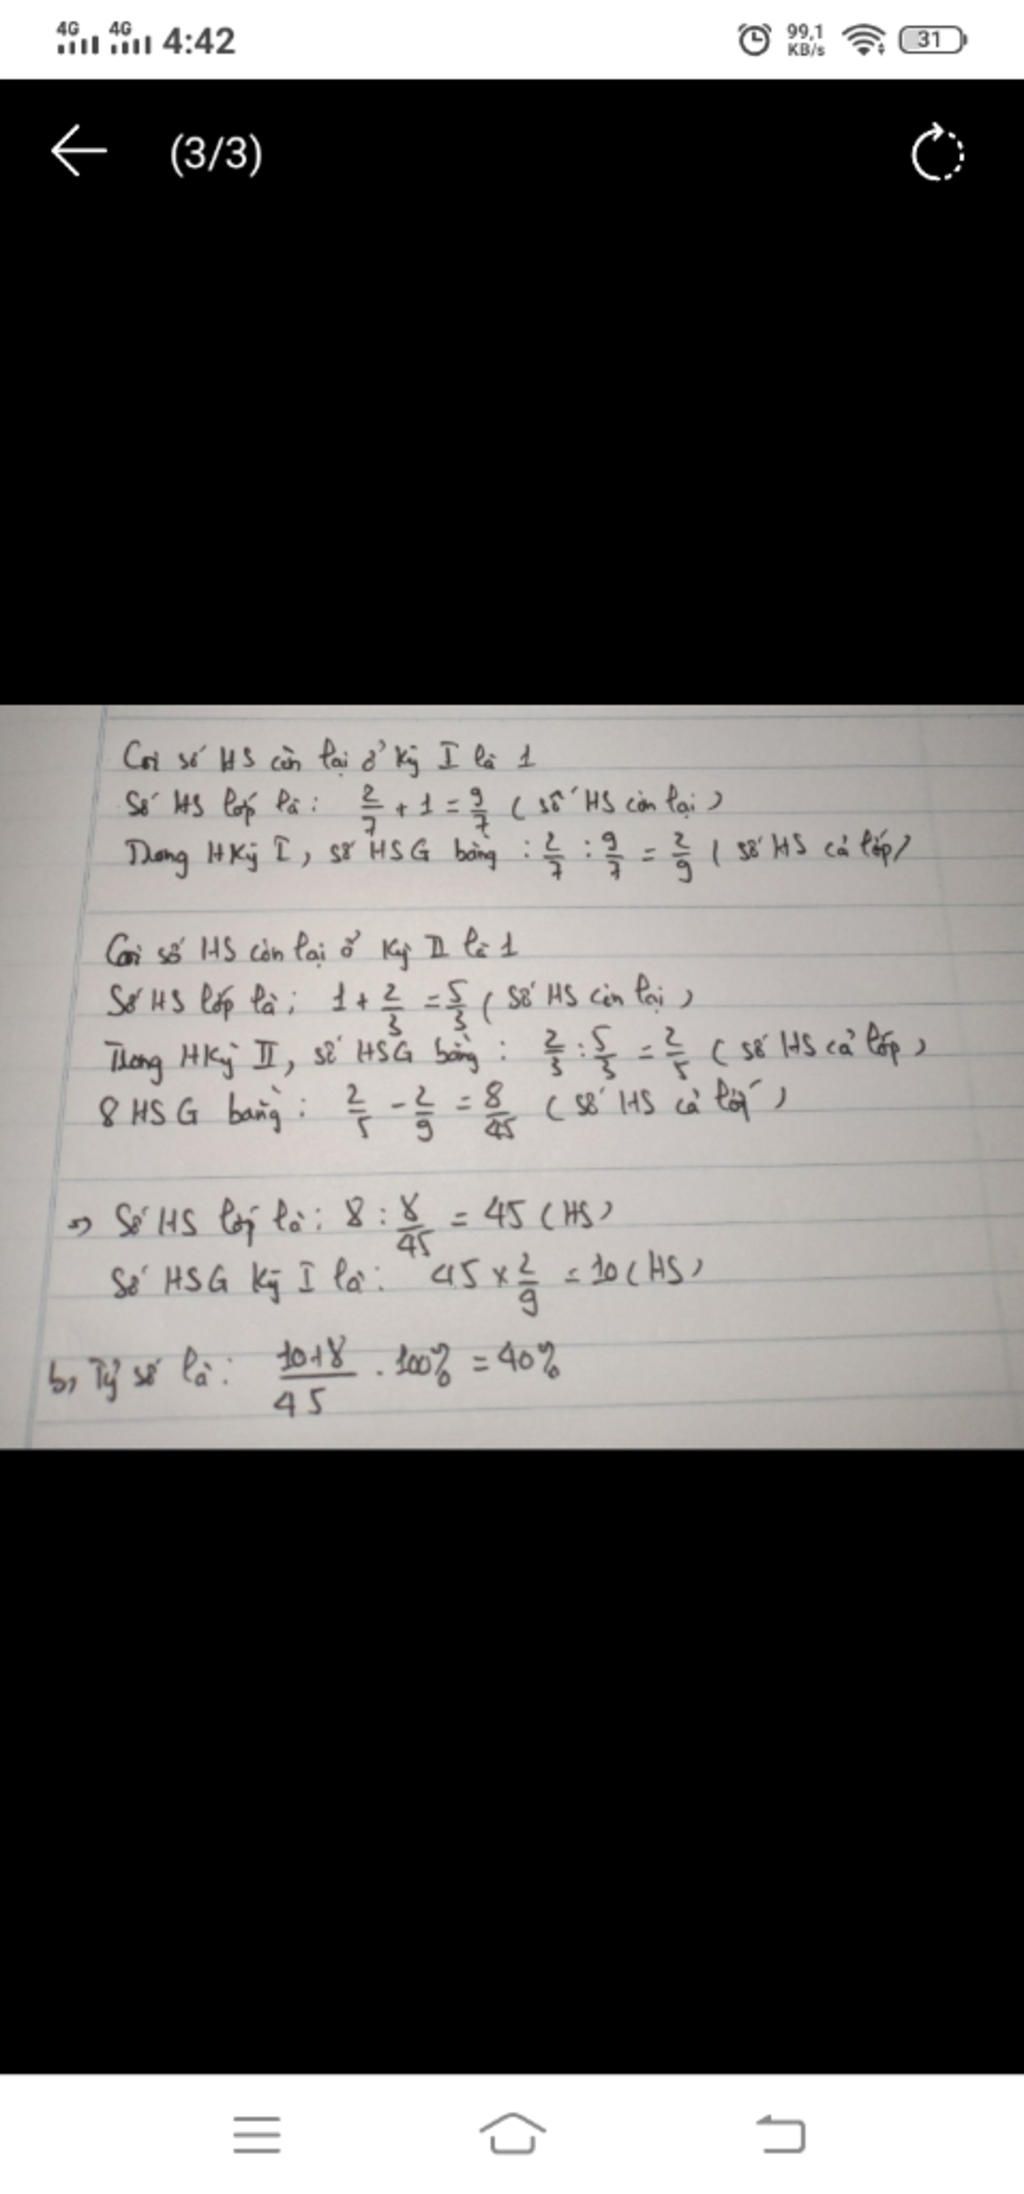 4G 4G 4:42 99,1 KB/s 31
(3/3)
Coi số HS còn lại ở Kỳ I là 1
Số HS lớp là: 2/7 + 1 = 9/7 ( số HS còn lại )
Trong HKỳ I, số HSG bằng : 2/7 : 9/7 = 2/9 ( số HS cả lớp )
Coi số HS còn lại ở Kỳ II là 1
Số HS lớp là; 1 + 2/3 = 5/3 ( Số HS còn lại )
Trong HKỳ II, số HSG bằng : 2/3 : 5/3 = 2/5 ( số HS cả lớp )
8 HSG bằng : 2/5 - 2/9 = 8/45 ( số HS cả lớp )
=> Số HS lớp là : 8 : 8/45 = 45 (HS)
Số HSG Kỳ I là : 45 x 2/9 = 10 (HS)
b, Tỷ số là : 10+8/45 . 100% = 40%